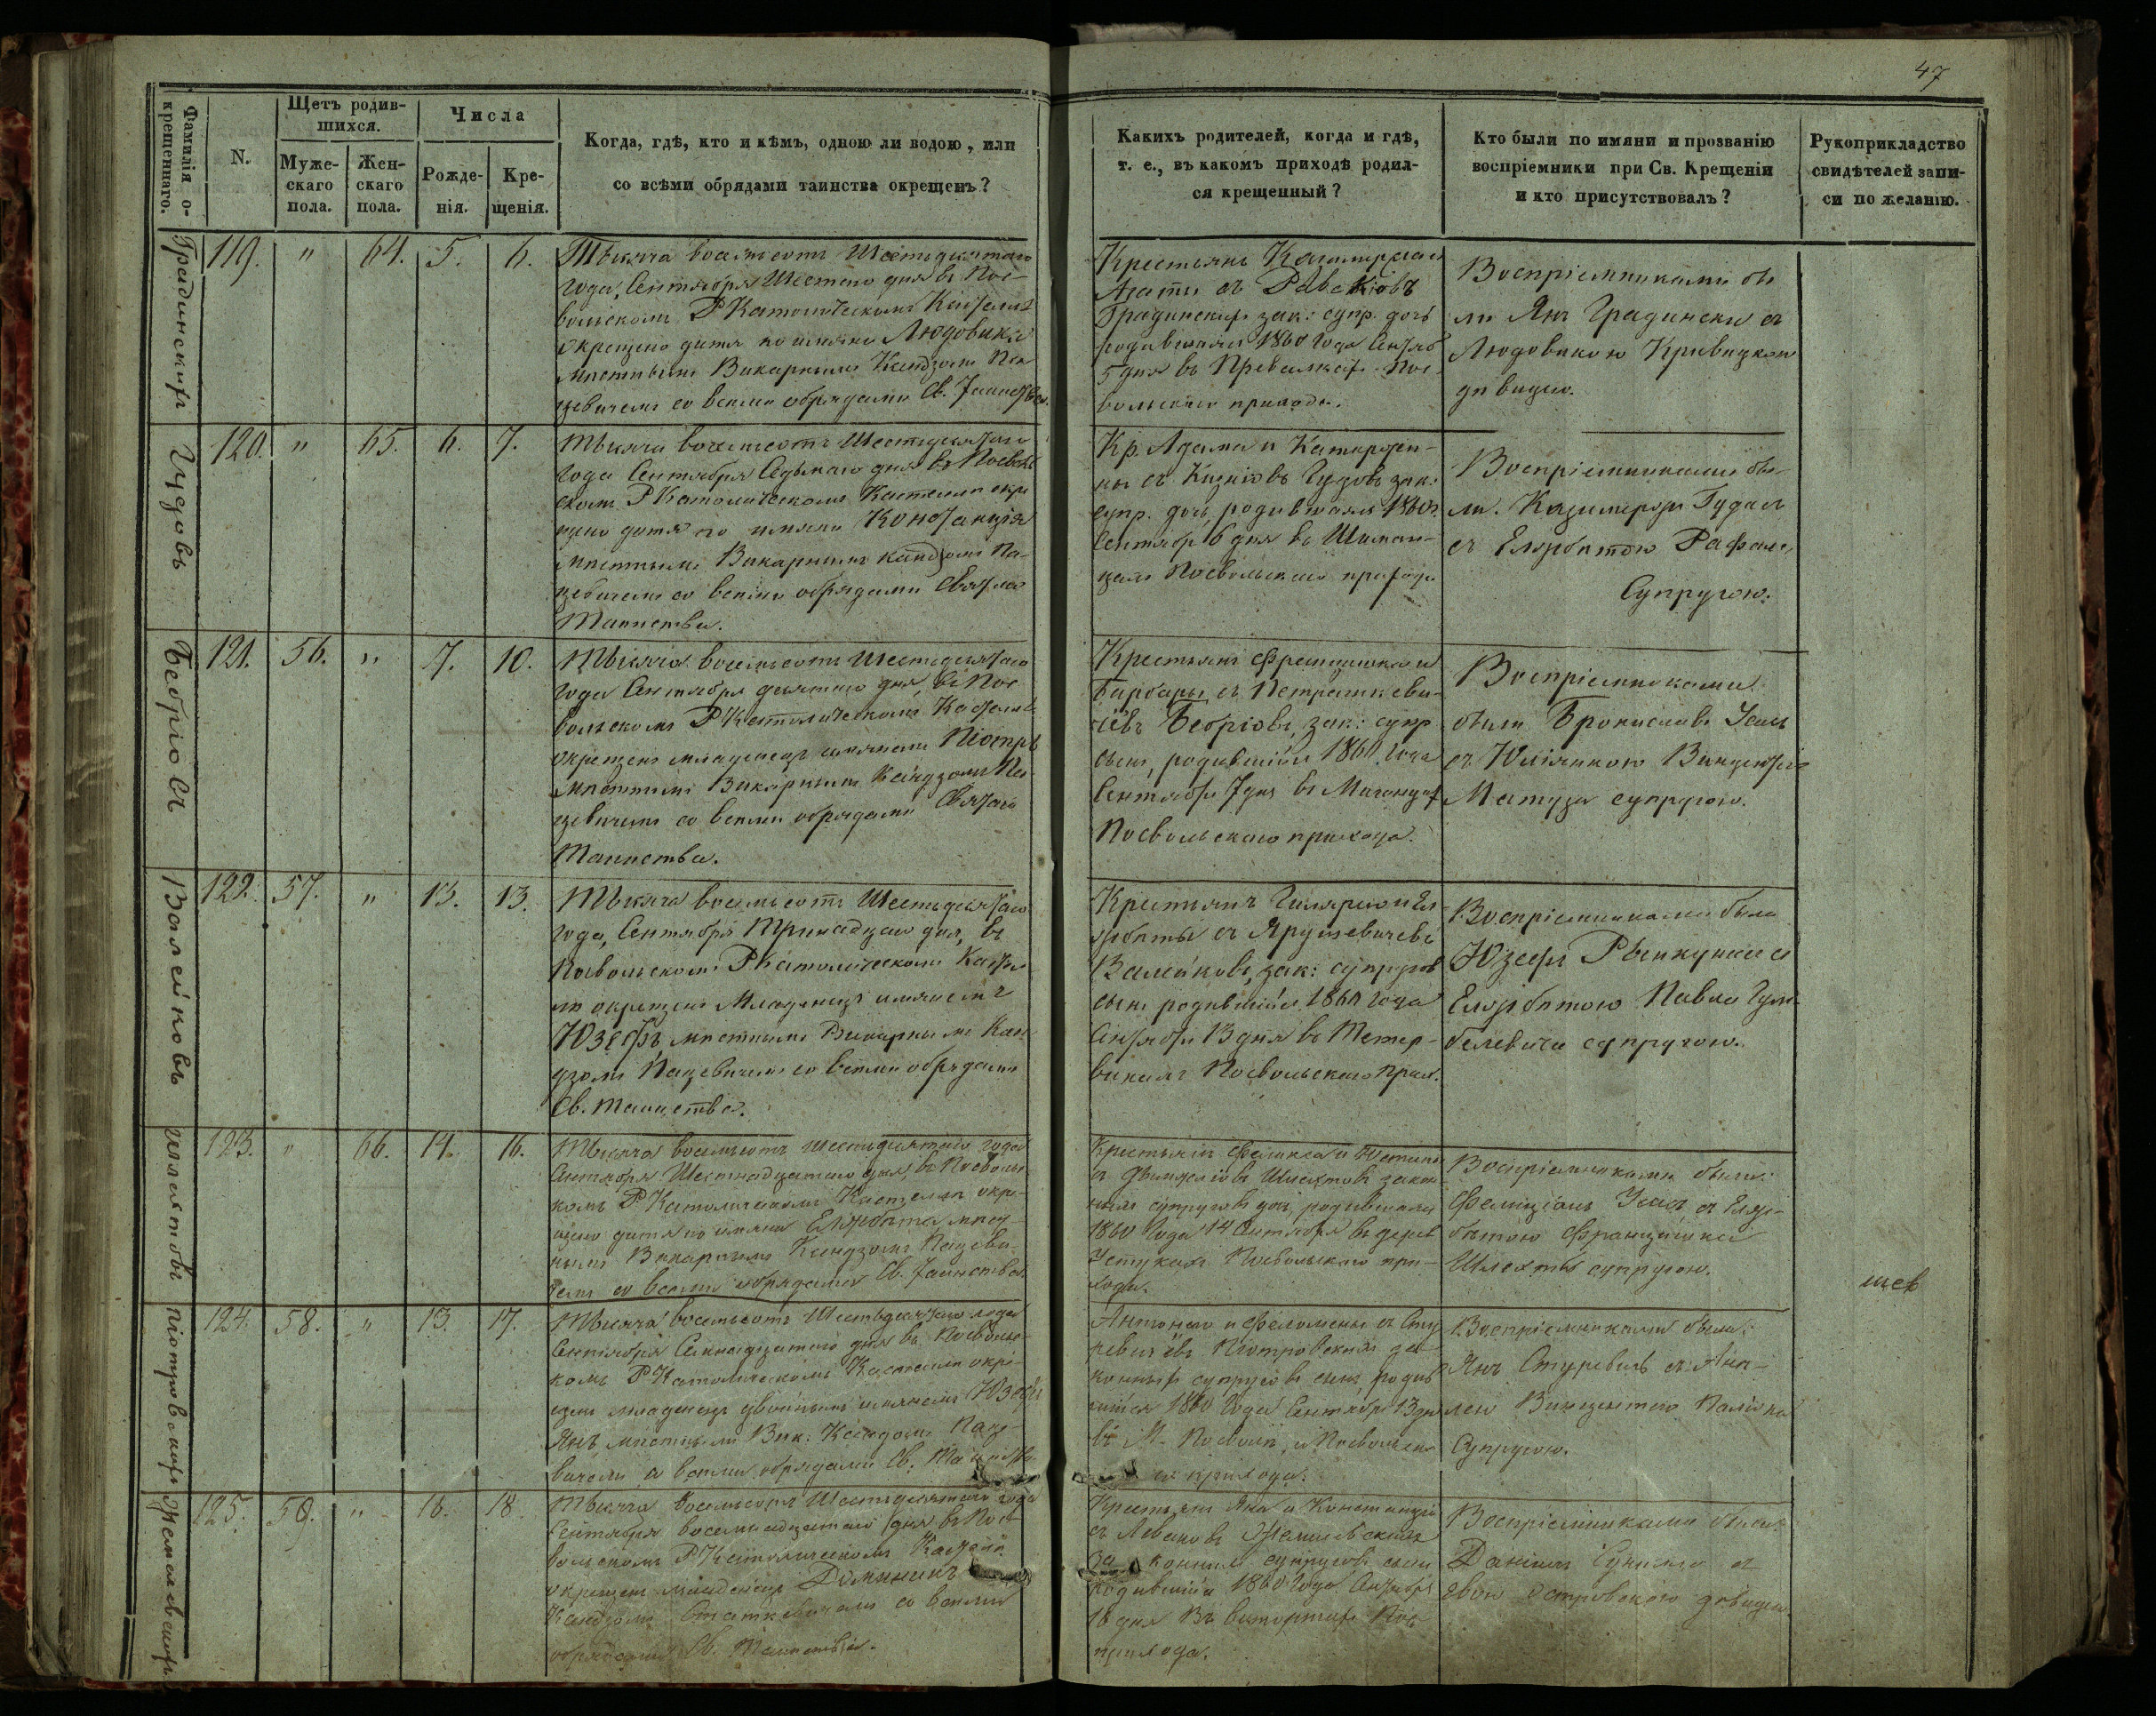 47
Фамилія о-
крещеннаго.
N.
Щетъ родив-
шихся.
Муже-
скаго
пола.
Жен-
скаго
пола.
Числа
Рожде-
нія.
Кре-
щенія.
Когда, гдѣ, кто и кѣмъ, одною ли водою, или
со всѣми обрядами таинства окрещенъ?
Какихъ родителей, когда и гдѣ,
т. е., въ какомъ приходѣ родил-
ся крещенный?
Кто были по имяни и прозванію
воспріемники при Св. Крещеніи
и кто присутствовалъ?
Рукоприкладство
свидѣтелей запи-
си по желанію.
119. " 64. 5. 6.
Тысяча восемьсотъ Шестьдесятаго
года, Сентября Шестаго дня въ Пос-
вольскомъ Р Католическомъ Костелѣ
окрещено дитя по имяни Людовика
мѣстнымъ Викарнымъ Ксендзомъ Па-
цевичемъ со всѣми обрядами Св. Таинства.
Крестьянъ Казимира и
Агаты съ
зак: супр. дочь
родившаяся 1860 года Сентяб
5 дня въ Пос-
вольскаго прихода.
Воспріемниками бы
ли Янъ Градински съ
Людовикою
дѣвицею.
Гудовъ
120. " 65. 6. 7.
Тысяча восемьсотъ Шестьдесятаго
года Сентября Седьмаго дня въ Посволь
скомъ Р Католическомъ Костелѣ окре
щено дитя по имяни Констанція
мѣстнымъ Викарнымъ Ксендзомъ Па-
цевичемъ со всѣми обрядами Святаго
Таинства.
Кр. Адама и Катержи-
ны съ Гудовъ зак:
супр. дочь, родившаяся 1860 г.
Сентября 6 дня въ Шиман-
цахъ Посвольскаго прихода
Воспріемниками бы-
ли. Казимержъ Гудасъ
съ Елжбѣтою Рафала
Супругою.
Бебріовъ
121. 56. " 7. 10.
Тысяча восемьсотъ Шестьдесятаго
года Сентября десятаго дня, въ Пос
вольскомъ Р Католическомъ Костелѣ
окрещенъ младенецъ имянемъ Піотръ
мѣстнымъ Викарнымъ Ксендзомъ Па
цевичемъ со всѣми обрядами Святаго
Таинства.
Крестьянъ Францишка и
Барбары съ Петрашкеви-
чёвъ Бебріовъ, зак: супр
сынъ, родившійся 1860 года
Сентября 7 дня въ
Посвольскаго прихода.
Воспріемниками
были Брониславъ
съ Юліянною Винцентія
Матуза супругою.
Валейковъ
122. 57. " 13. 13.
Тысяча восемьсотъ Шестьдесятаго
года, Сентября Тринадцаго дня, въ
Посвольскомъ Р Католическомъ Косте
лѣ окрещенъ Младенецъ имянемъ
Юзефъ, мѣстнымъ Викарнымъ Ксен
дзомъ Пацевичемъ со всѣми обрядами
Св. Таинства.
Крестьянъ Гиляріо и Ел-
жбѣты съ Ярушевичевъ
Валейковъ, зак: супруговъ
сынъ, родившійся 1860 года
Сентября 13 дня въ Тетер-
Посвольскаго прих.
Воспріемниками были
Юзефъ съ
Елжбѣтою Павла
супругою.
Шляхтовъ
123. " 66. 14. 16.
Тысяча восемьсотъ Шестьдесятаго года
Сентября Шестнадцатаго дня, въ Посвольс
комъ Р Католическомъ Костелѣ окре-
щено дитя по имяни Елжбѣта мѣст-
нымъ Викарнымъ Ксендзомъ Пацеви
чемъ со всѣми обрядами Св. Таинства.
Крестьянъ Феликса и Юстины
Шляхтовъ закон-
ныхъ супруговъ дочь, родившаяся
1860 года 14 Сентября въ дерев
Посвольскаго при-
хода.
Воспріемниками были:
съ Елж-
бѣтою Францишка
Шляхты супругою.
Піотровскихъ
124. 58. " 13. 17.
Тысяча восемьсотъ Шестьдесятаго года
Сентября Семнадцатаго дня въ Посвольс
комъ Р Католическомъ Костелѣ окре-
щенъ младенецъ двойнымъ имянемъ Юзефъ
Янъ, мѣстнымъ Вик: Ксендзомъ Паце-
вичемъ со всѣми обрядами Св. Таинства
Антонего и Филомены съ Сту
ревичёвъ Піотровскихъ за-
конныхъ супруговъ сынъ родив
шійся 1860 года Сентября 13 дня
въ М. Посволѣ, Посвольска
го прихода.
Воспріемниками были:
Янъ Стуревичъ съ
Винцентего
Супругою.
125. 59. " 16. 18.
Тысяча восемьсотъ Шестьдесятаго года
Сентября восемнадцатаго дня въ Пос-
вольскомъ Р Католическомъ Костелѣ
окрещенъ младенецъ Доминикъ
Ксендзомъ Статкевичемъ со всѣми
обрядами Св. Таинства.
Крестьянъ Яна и Констанціи
съ
законныхъ супруговъ сынъ
родившійся 1860 года Сентября
16 дня въ Пос
прихода.
Воспріемниками были:
съ
Евою дѣвицею.